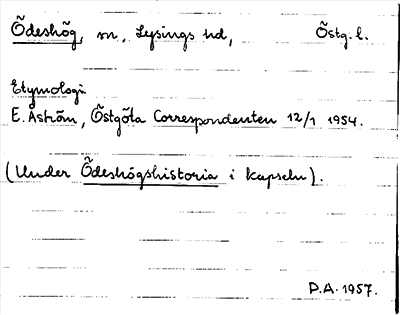 Ödeshög, sn, Lysings hd, Östg. l.
Etymologi
E. Åström, Östgöta Correspondenten 12/1 1954.
(Under Ödeshögshistoria i kapseln).
P.A. 1957.